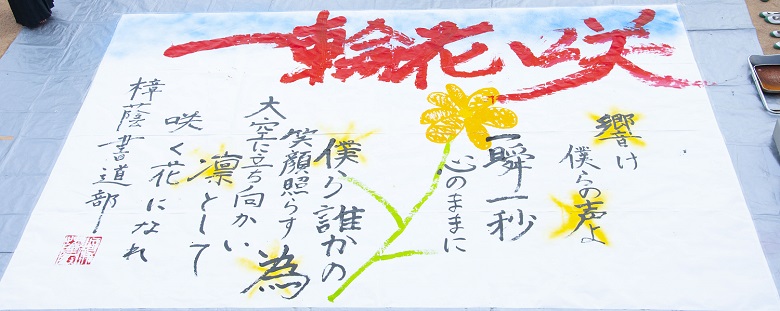 一輪花咲
響け
僕らの声よ
一瞬一秒
心のままに
僕ら誰かの
笑顔照らす為
大空に立ち向かい
凛として
咲く花になれ
樟蔭書道部